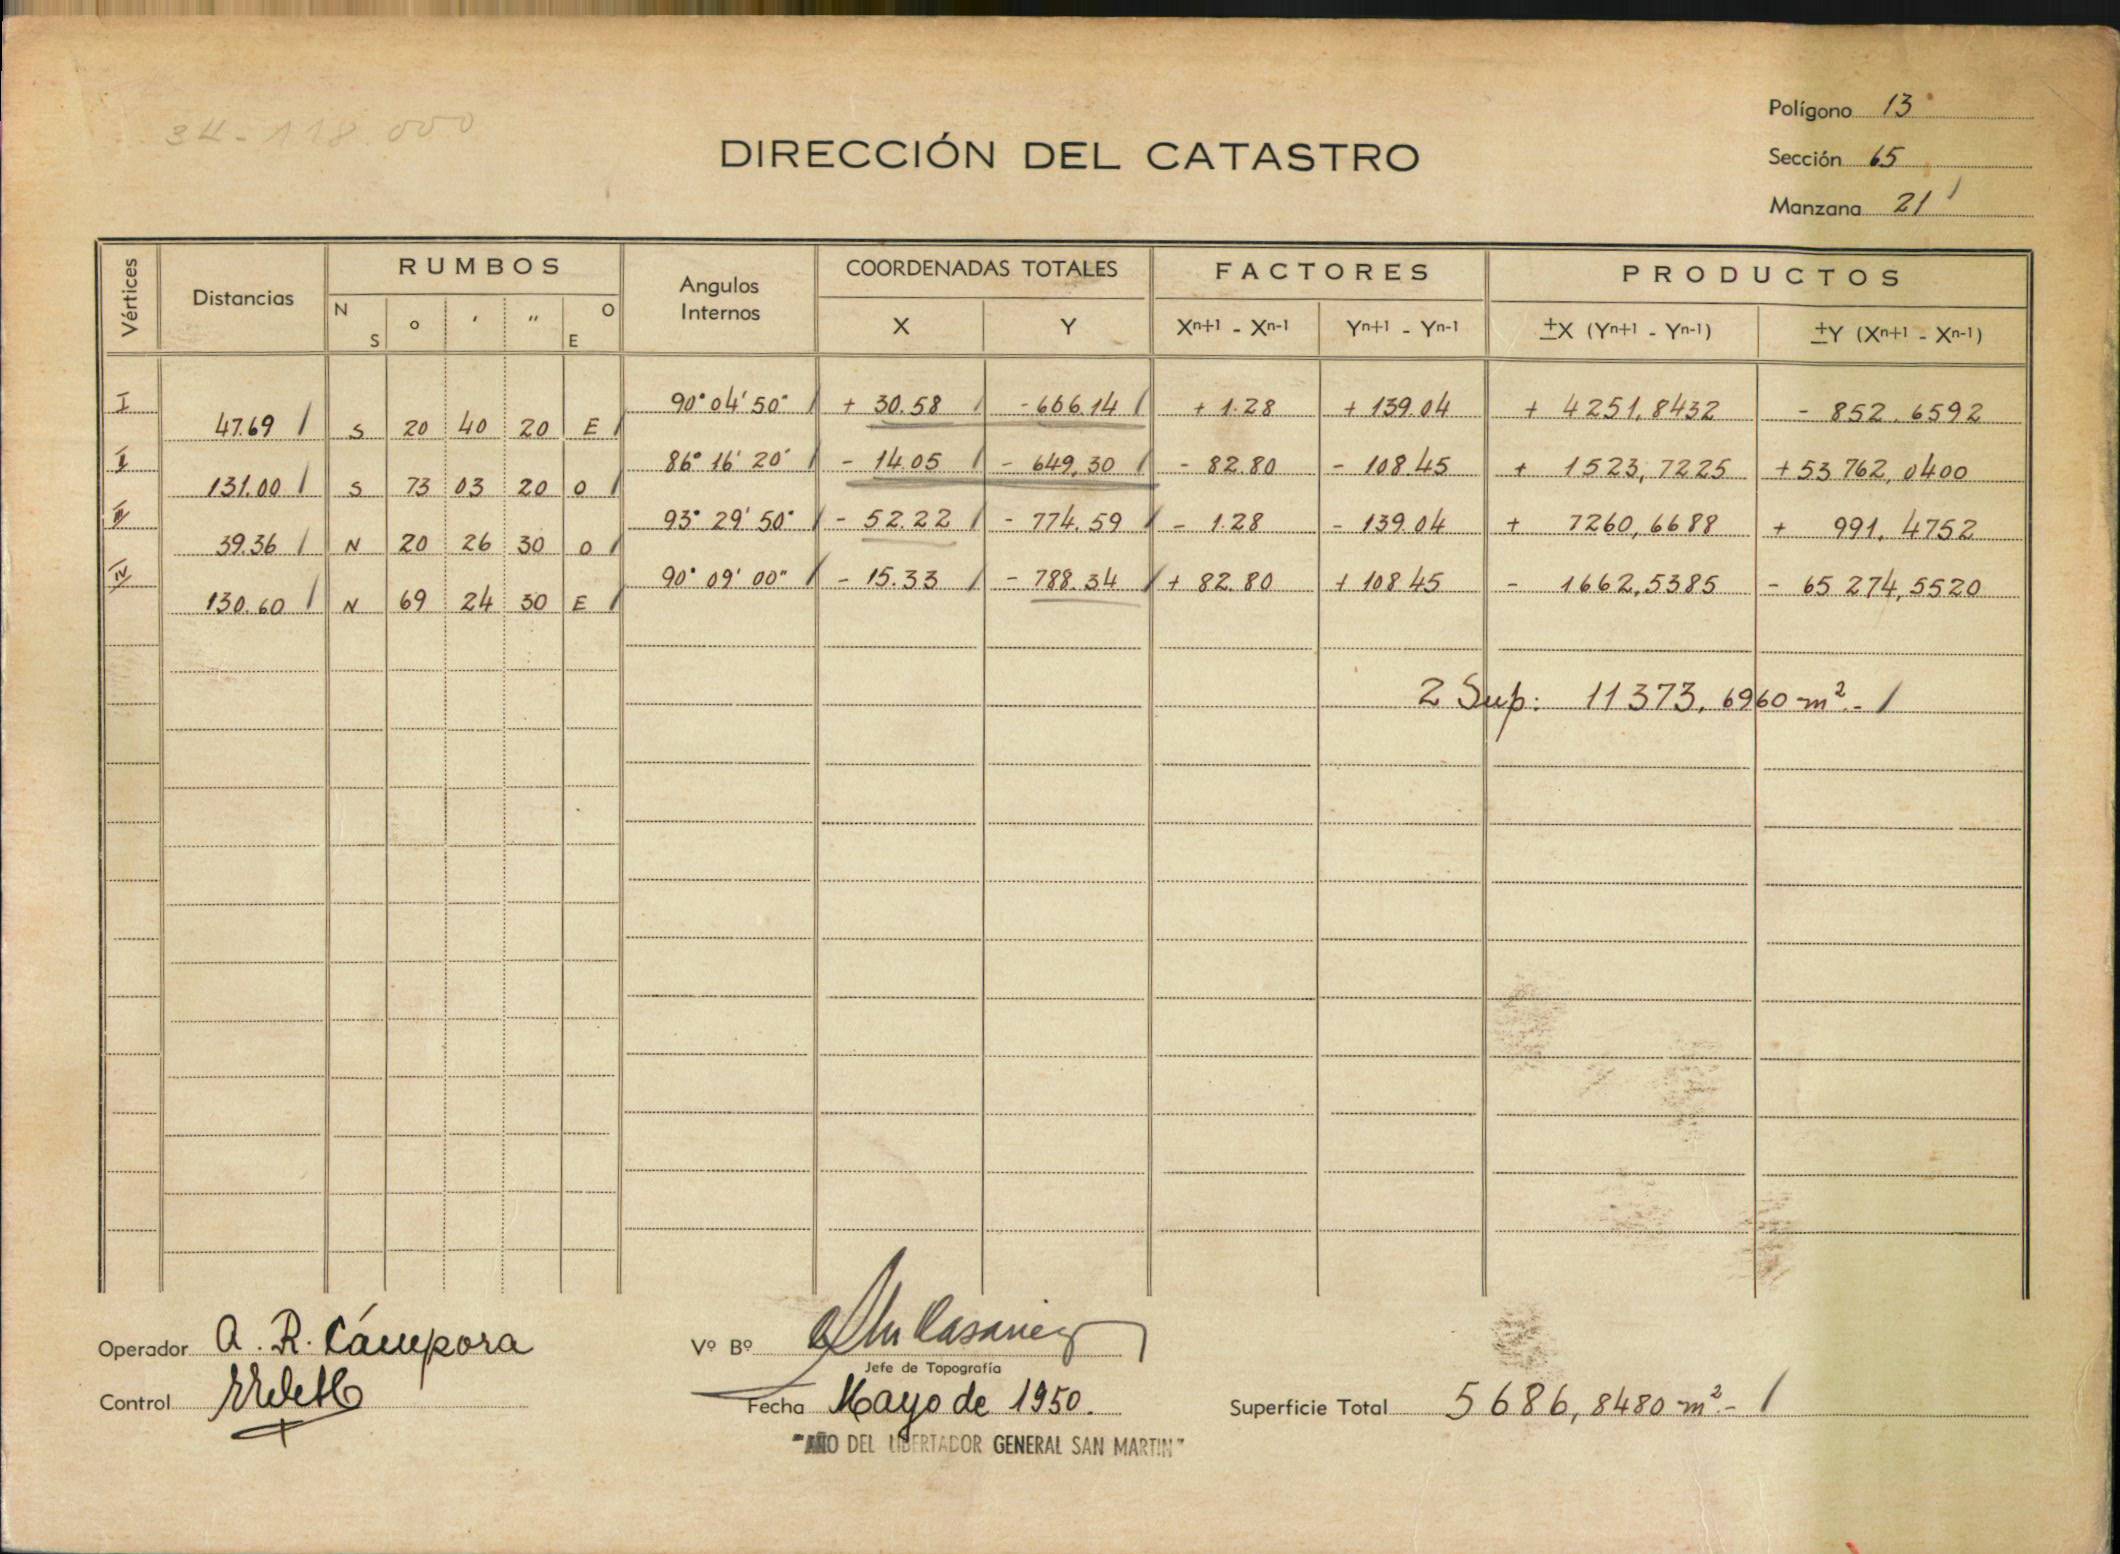 34-118.000
Polígono 13
DIRECCIÓN DEL CATASTRO
Sección 65
Manzana 21
Vértices
Distancias
RUMBOS
N S ° ' " O E
Angulos
Internos
COORDENADAS TOTALES
X Y
FACTORES
Xn+1 - Xn-1 Yn+1 - Yn-1
PRODUCTOS
±X (Yn+1 - Yn-1) ±Y (Xn+1 - Xn-1)
I 90° 04' 50" + 30.58 - 666.14 + 1.28 + 139.04 + 4251,8432 - 852.6592
47.69 S 20 40 20 E
II 86° 16' 20" - 14.05 - 649,30 - 82.80 - 108.45 + 1523,7225 + 53 762,0400
131.00 S 73 03 20 O
III 93° 29' 50" - 52.22 - 774.59 - 1.28 - 139.04 + 7260,6688 + 991,4752
39.36 N 20 26 30 O
IV 90° 09' 00" - 15.33 - 788.34 + 82.80 + 108.45 - 1662,5385 - 65 274,5520
130.60 N 69 24 30 E
2 Sup: 11373,6960 m².-
Operador A. R. Cámpora
Vº Bº
Jefe de Topografía
Control
Fecha Mayo de 1950.
Superficie Total 5686,8480 m².-
"AÑO DEL LIBERTADOR GENERAL SAN MARTIN"